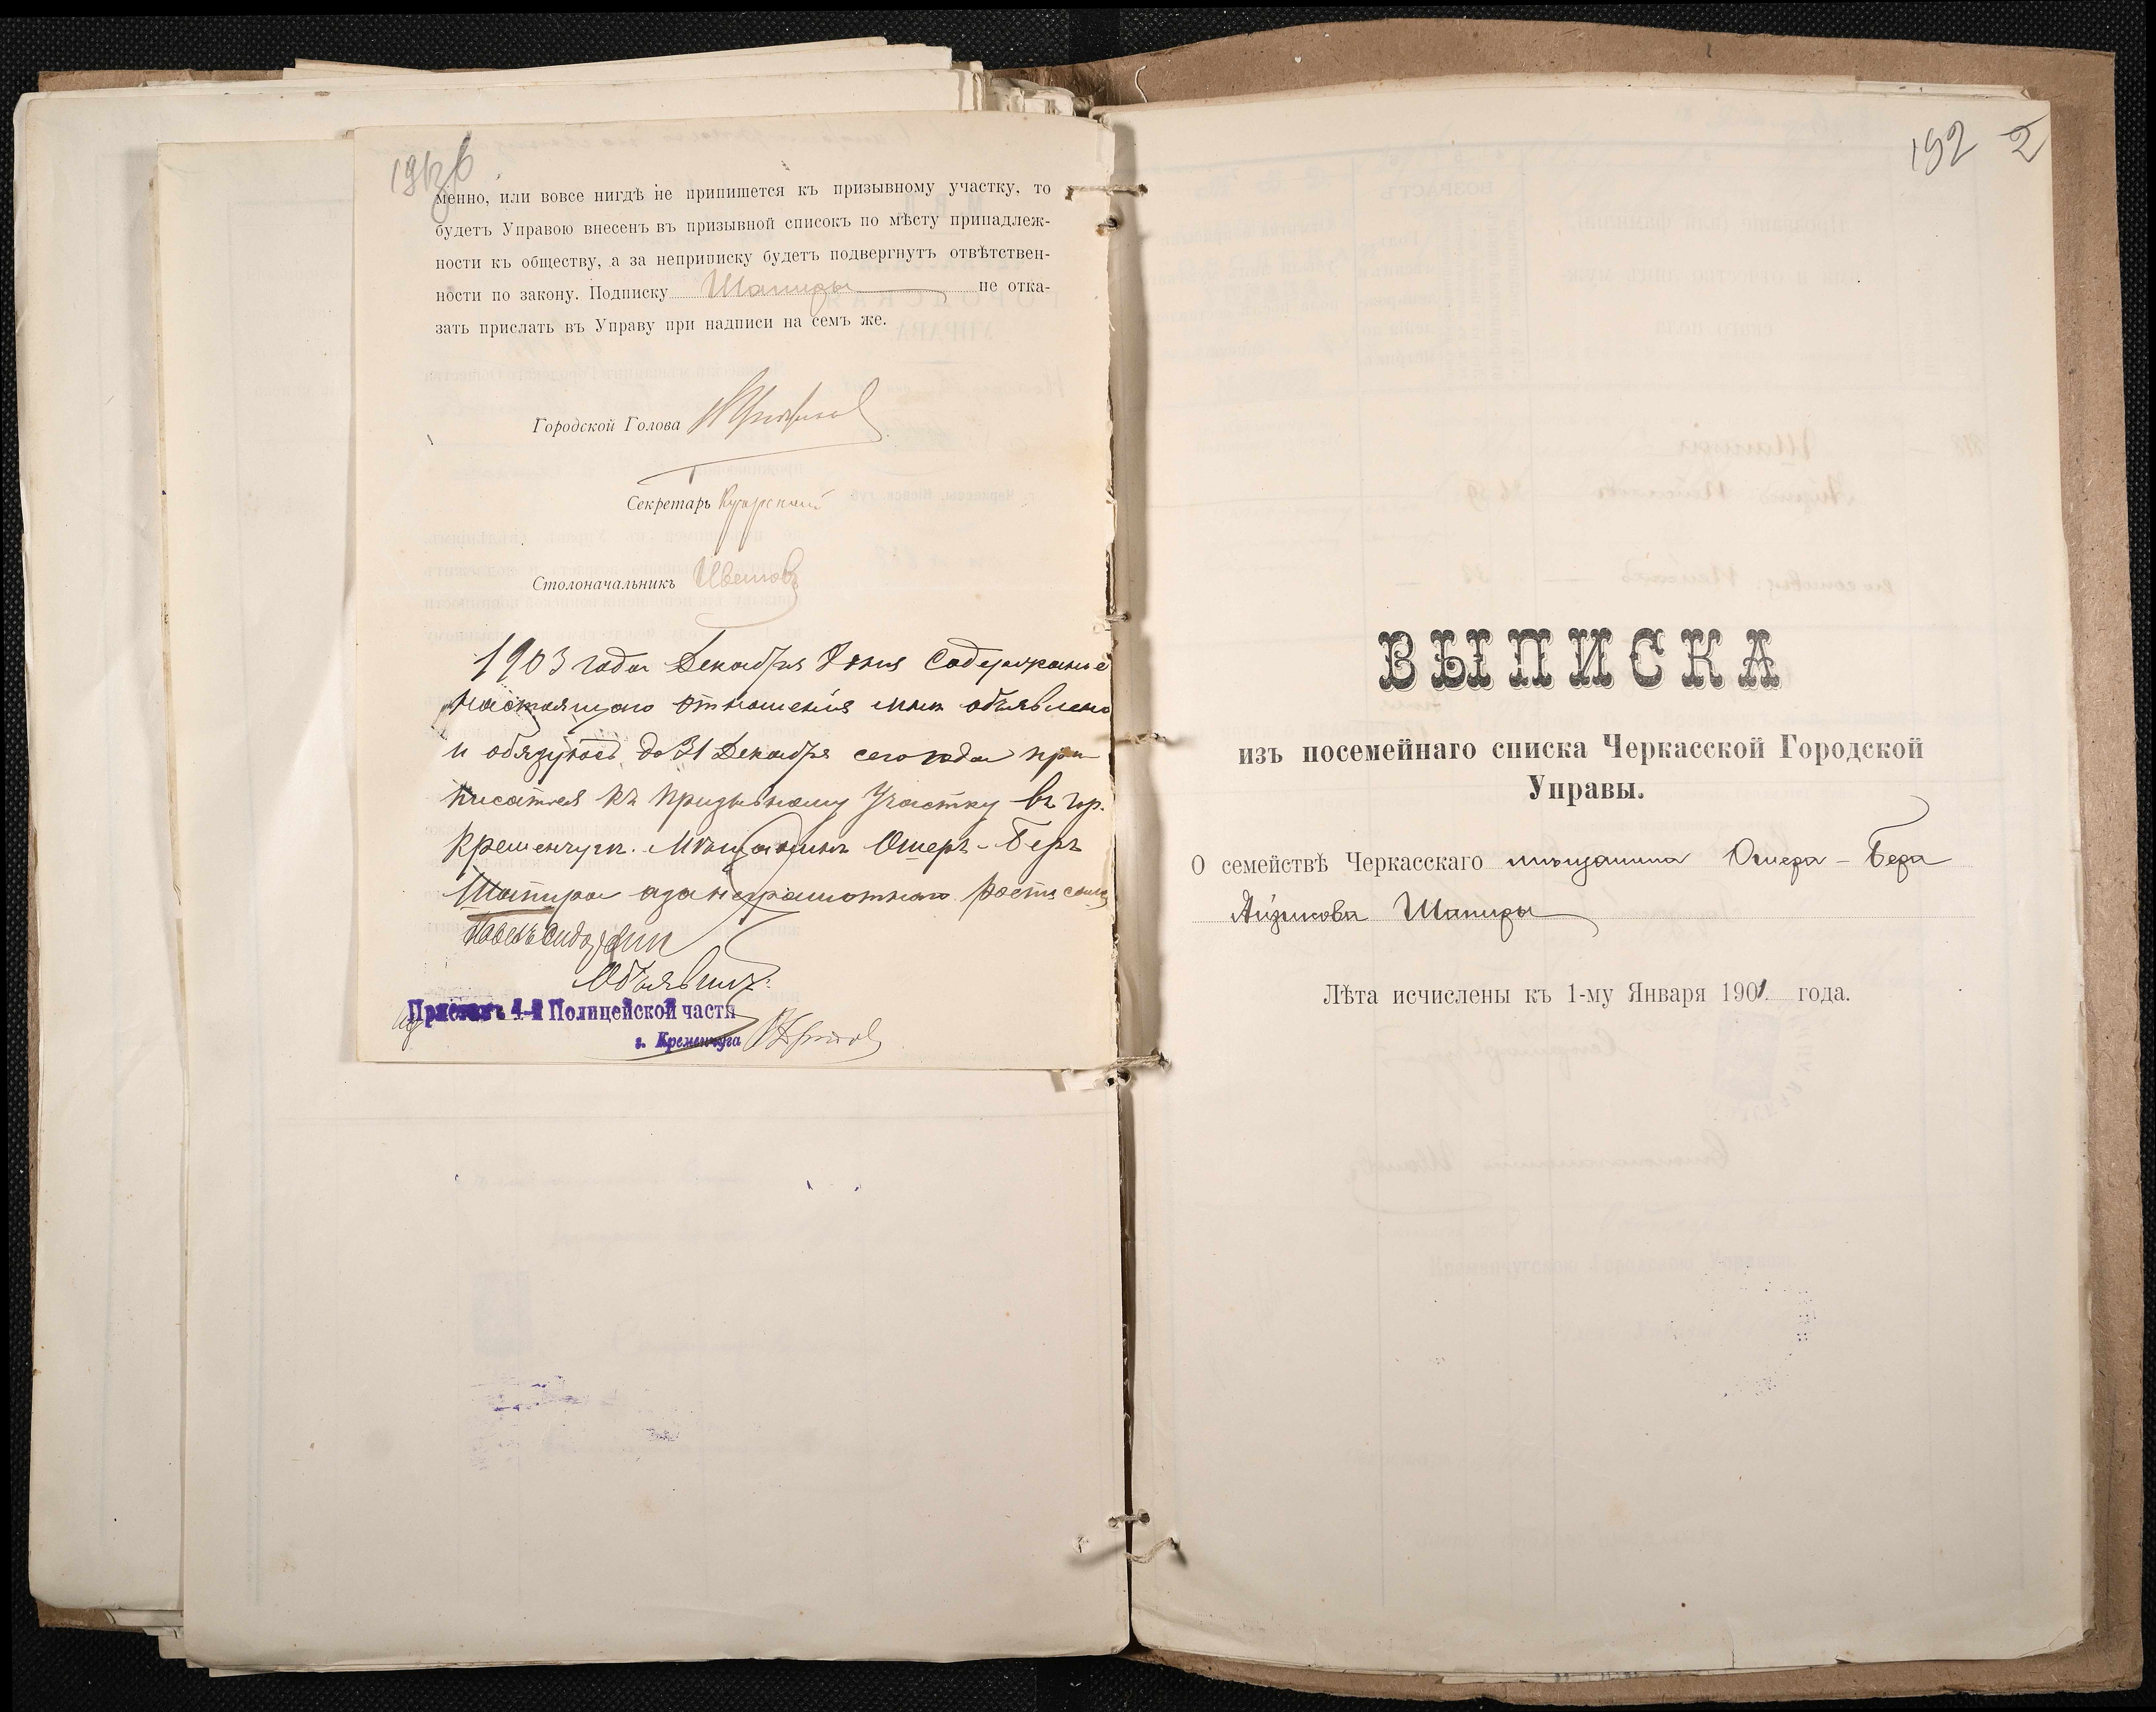 менно, или вовсе нигдѣ не припишется къ призывному участку, то
будетъ Управою внесенъ въ призывной списокъ по мѣсту принадлеж-
ности къ обществу, а за неприписку будетъ подвергнутъ отвѣтствен-
ности по закону. Подписку Шапиры не отка-
зать прислать въ Управу при надписи на семъ же.
Городской Голова
Секретарь
Столоначальникъ
1903 года Декабря дня Содержание
настоящаго отношенія мнѣ объявлено
и обязуюсь до 31 Декабря сего года при-
писатся къ призывному участку въ гор.
Кременчугѣ. Мѣщанинъ Ошеръ-Беръ
Шапира а за неграмотнаго
Объявилъ:
Приставъ 4-й Полицейской части
г. Кременчуга
192 2
ВЫПИСКА
изъ посемейнаго списка Черкасской Городской
Управы.
О семействѣ Черкасскаго мѣщанина Ошера-Бера
Айзикова Шапиры
Лѣта исчислены къ 1-му Января 1901 года.